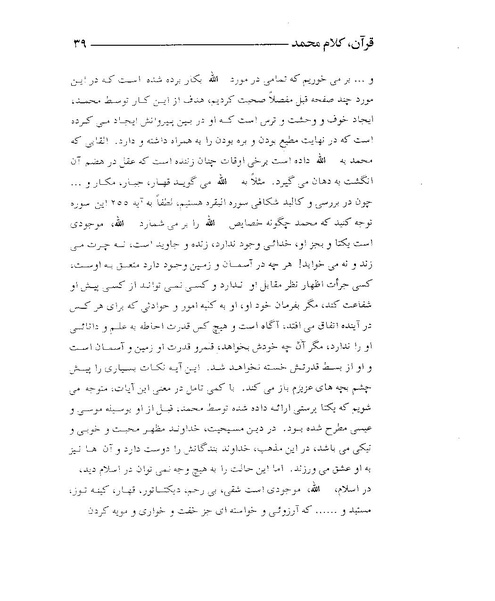 قرآن، کلام محمد ۳۹
و ... بر می خوریم که تمامی در مورد الله بکار برده شده است که در این
مورد چند صفحه قبل مفصلاً صحبت کردیم، هدف از این کار توسط محمد،
ایجاد خوف و وحشت و ترس است که او در بین پیروانش ایجاد می کرده
است که در نهایت مطیع بودن و بره بودن را به همراه داشته و دارد. القابی که
محمد به الله داده است برخی اوقات چنان زننده است که عقل در هضم آن
انگشت به دهان می گیرد. مثلاً به الله می گوید قهار، جبار، مکار و ...
چون در بررسی و کالبد شکافی سوره البقره هستیم، لطفاً به آیه ۲۵۵ این سوره
توجه کنید که محمد چگونه خصایص الله را بر می شمارد الله، موجودی
است یکتا و بجز او، خدائی وجود ندارد، زنده و جاوید است، نه چرت می
زند و نه می خوابد! هر چه در آسمان و زمین وجود دارد متعلق به اوست،
کسی جرأت اظهار نظر مقابل او ندارد و کسی نمی تواند از کسی پیش او
شفاعت کند، مگر بفرمان خود او، او به کلیه امور و حوادثی که برای هر کس
در آینده اتفاق می افتد، آگاه است و هیچ کس قدرت احاطه به علم و دانائی
او را ندارد، مگر آن چه خودش بخواهد، قلمرو قدرت او زمین و آسمان است
و او از بسط قدرتش خسته نخواهد شد. این آیه نکات بسیاری را پیش
چشم بچه های عزیزم باز می کند. با کمی تامل در معنی این آیات، متوجه می
شویم که یکتا پرستی ارائه داده شده توسط محمد، قبل از او بوسیله موسی و
عیسی مطرح شده بود. در دین مسیحیت، خداوند مظهر محبت و خوبی و
نیکی می باشد، در این مذهب، خداوند بندگانش را دوست دارد و آن ها نیز
به او عشق می ورزند. اما این حالت را به هیچ وجه نمی توان در اسلام دید،
در اسلام، الله، موجودی است شقی، بی رحم، دیکتاتور، قهار، کینه توز،
مستبد و ...... که آرزوئی و خواسته ای جز خفت و خواری و مویه کردن